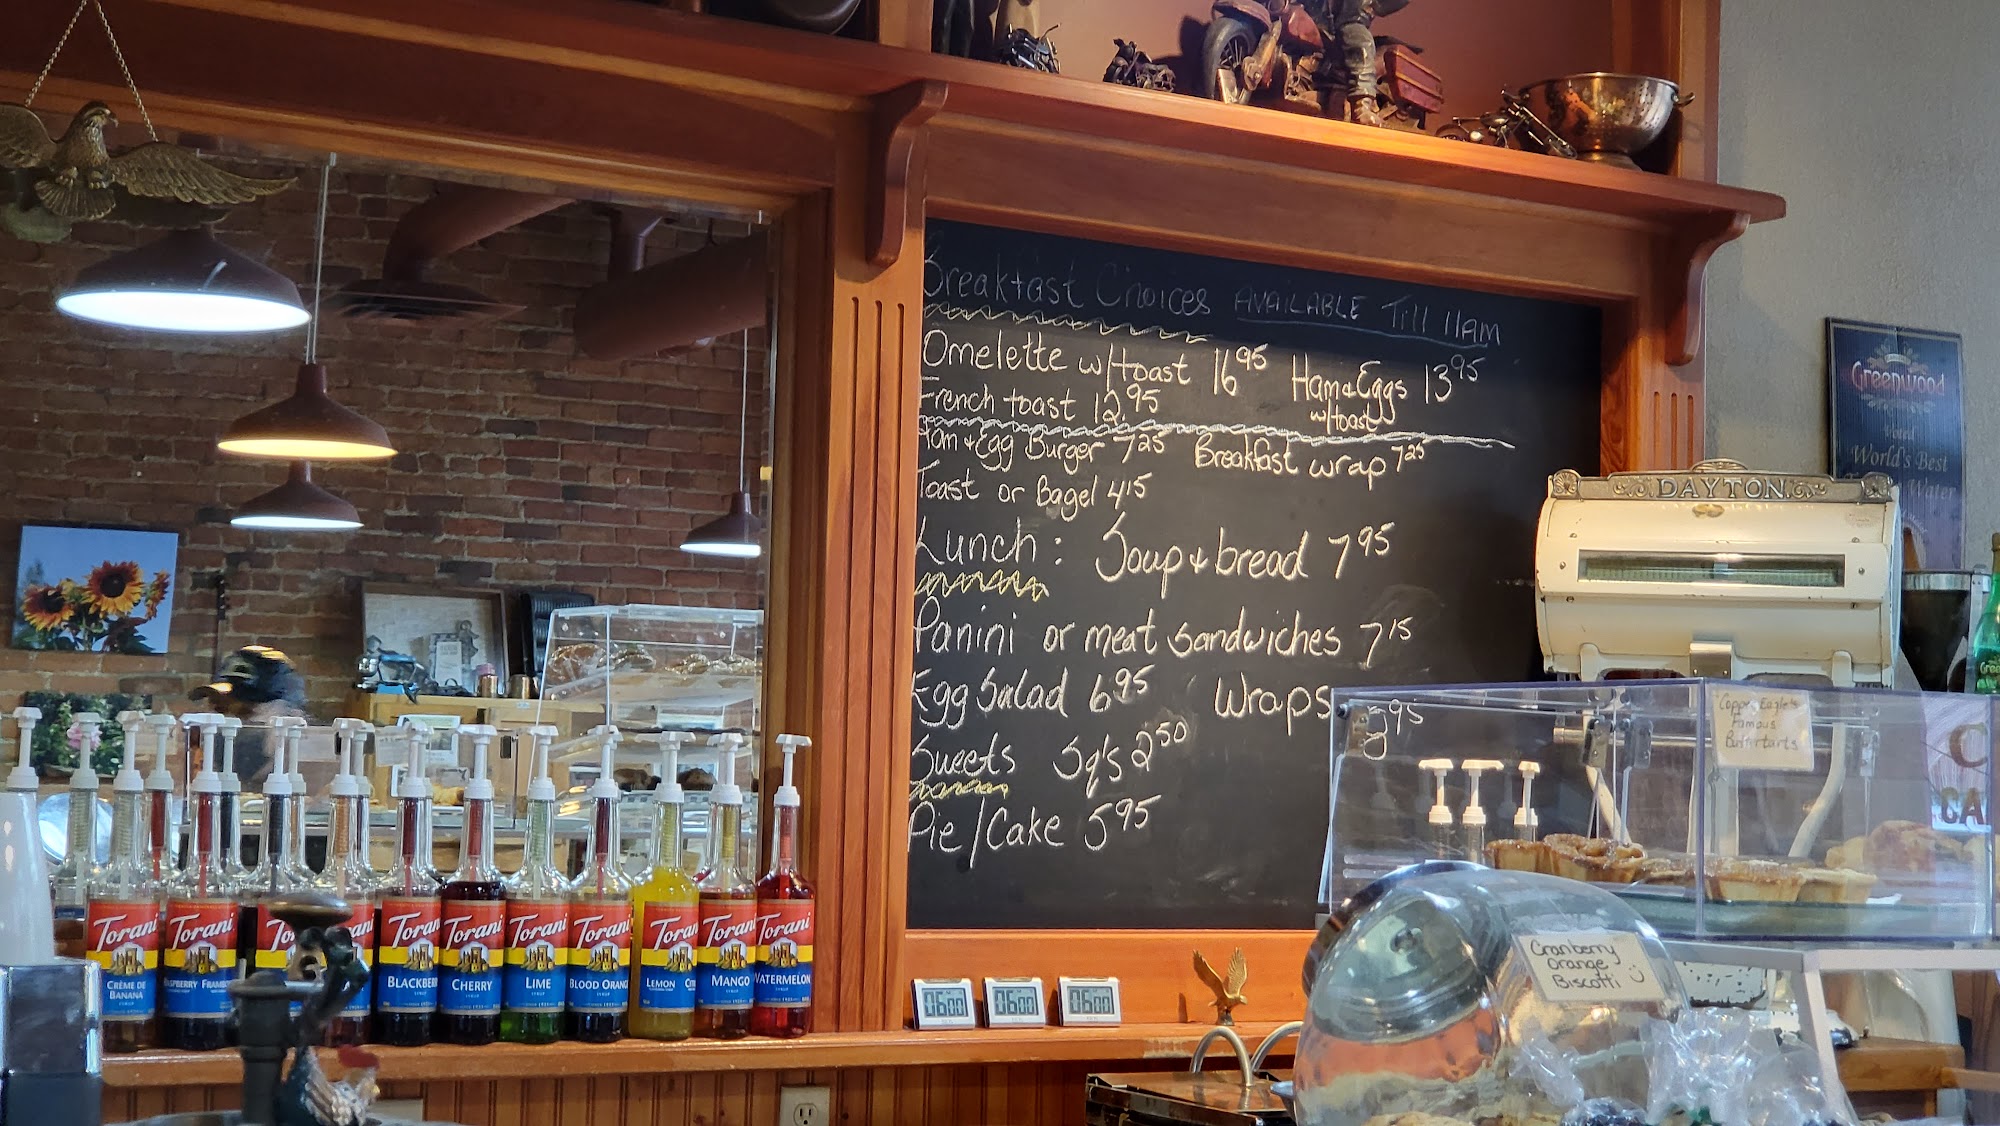 Breakfast Choices AVAILABLE Till 11AM
Omelette w/toast 16 95 Ham & Eggs 13 95
w/toast
French toast 12.95
Ham + Egg Burger 7 25 Breakfast wrap 7 25
Toast or Bagel 4 15
Lunch: Soup + bread 7 95
Panini or meat sandwiches 7 15
Egg Salad 6 95 Wraps 8 95
Sweets Sq's 2 50
Pie/Cake 5 95
DAYTON
Greenwood
Voted
World's Best
Water
Copper Eaglet's
Famous
Buttertarts
C
CA
Cranberry
Orange
Biscotti
06:00
06:00
06:00
Torani
CRÈME DE
BANANA
Torani
RASPBERRY FRAMBO
Torani
Torani
BLACKBERR
Torani
CHERRY
SYRUP
Torani
LIME
SYRUP
Torani
BLOOD ORANG
SYRUP
Torani
LEMON
Torani
MANGO
SYRUP
Torani
WATERMELON